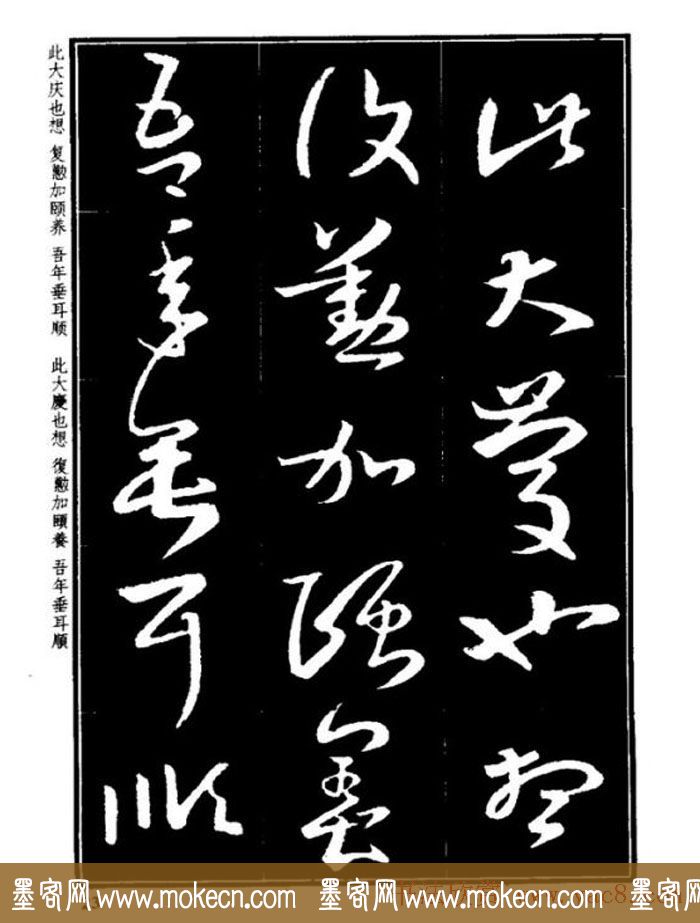 此大慶也想
復懃加頤養
吾年垂耳順
此大庆也想 复懃加颐养 吾年垂耳顺 此大慶也想 復懃加頤養 吾年垂耳順
墨客网 www.mokecn.com 墨客网 www.mokecn.com 墨客网